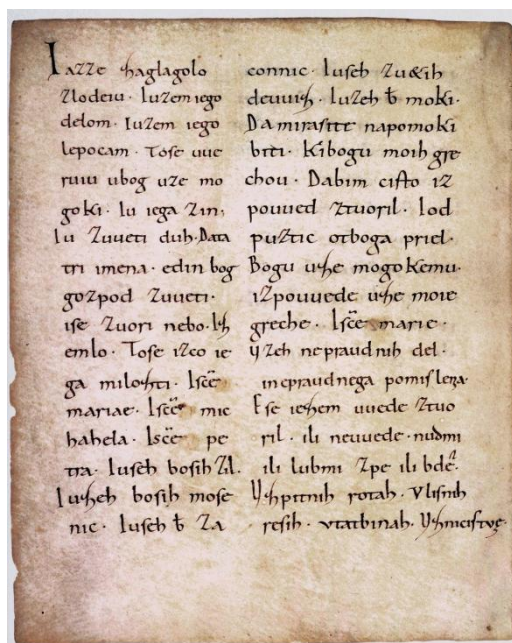 Iazze zaglagolo
zlodeiu. Iuzem iego
delom. Iuzem iego
lepocam. Tose uue
ruiu ubog uze mo
goki. Iu iega zin.
Iu zuueti duh. Data
tri imena. edin bog
gozpod zuueti.
ise zuori nebo. Iz
emlo. Tose izco ie
ga miloszti. Iscē
mariae. Iscē mic
hahela. Iscē pe
tra. Iuseh bosih zil.
Iuzeh bosih mose
nic. Iuseh b̄ za
connic. Iuseh zu&ih
deuuiz. Iuzeh b̄ moki.
Da mirasite napomoki
biti. Kibogu moih gre
chou. Dabim cisto iz
pouued ztuoril. Iod
puztic otboga priel.
Bogu uze mogokemu.
izpouuede uze moie
greche. Iscē marie.
Uzeh nepraudnih del.
inepraudnega pomislenza.
Ese iezem uuede ztuo
ril. ili neuuede. nudmi
ili lubmi zpe ili bde.
Uzpitnih rotah. Vlisnih
resih. vtatbinah. Uznicistve.